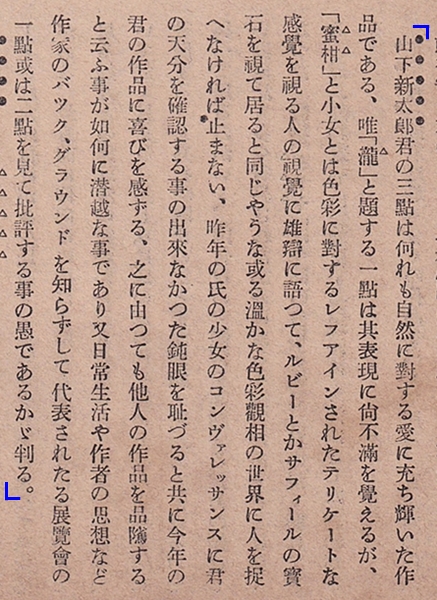 山下新太郎君の三點は何れも自然に對する愛に充ち輝いた作
品である、唯「瀧」と題する一點は其表現に尙不滿を覺えるが、
「蜜柑」と小女とは色彩に對するレフアインされたテリケートな
感覺を視る人の視覺に雄辯に語つて、ルビーとかサフィールの寶
石を視て居ると同じやうな或る溫かな色彩觀相の世界に人を捉
へなければ止まない、昨年の氏の少女のコンヴァレッサンスに君
の天分を確認する事の出來なかつた鈍眼を耻づると共に今年の
君の作品に喜びを感ずる、之に由つても他人の作品を品隲する
と云ふ事が如何に潜越な事であり又日常生活や作者の思想など
作家のバツク、グラウンドを知らずして代表されたる展覽會の
一點或は二點を見て批評する事の愚であるかゞ判る。